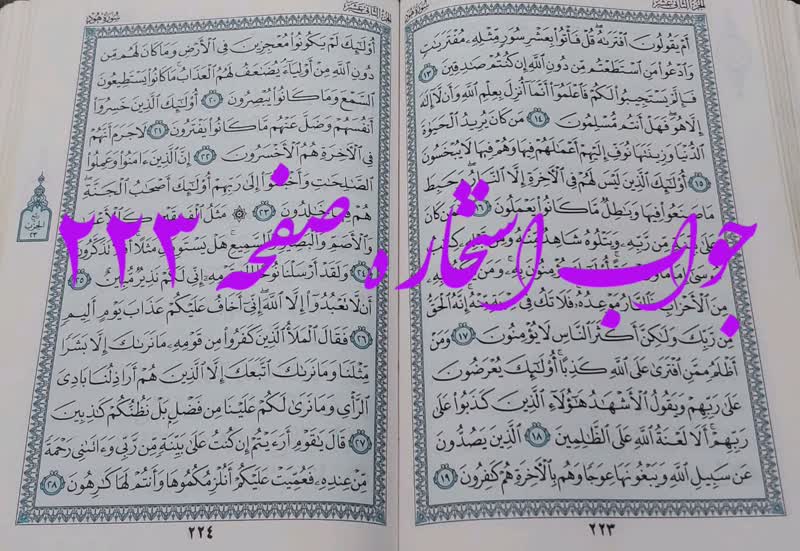 سُورَةُ هُودٍ
الجزء الثاني عشر
أَمْ يَقُولُونَ افْتَرَىٰهُ قُلْ فَأْتُوا۟ بِعَشْرِ سُوَرٍ مِّثْلِهِۦ مُفْتَرَيَٰتٍ
وَادْعُوا۟ مَنِ اسْتَطَعْتُم مِّن دُونِ اللَّهِ إِن كُنتُمْ صَٰدِقِينَ ١٣
فَإِلَّمْ يَسْتَجِيبُوا۟ لَكُمْ فَاعْلَمُوٓا۟ أَنَّمَآ أُنزِلَ بِعِلْمِ اللَّهِ وَأَن لَّآ إِلَٰهَ
إِلَّا هُوَ فَهَلْ أَنتُم مُّسْلِمُونَ ١٤ مَن كَانَ يُرِيدُ الْحَيَوٰةَ
الدُّنْيَا وَزِينَتَهَا نُوَفِّ إِلَيْهِمْ أَعْمَٰلَهُمْ فِيهَا وَهُمْ فِيهَا لَا يُبْخَسُونَ
١٥ أُو۟لَٰٓئِكَ الَّذِينَ لَيْسَ لَهُمْ فِى الْءَاخِرَةِ إِلَّا النَّارُ وَحَبِطَ
مَا صَنَعُوا۟ فِيهَا وَبَٰطِلٌ مَّا كَانُوا۟ يَعْمَلُونَ ١٦ أَفَمَن كَانَ
عَلَىٰ بَيِّنَةٍ مِّن رَّبِّهِۦ وَيَتْلُوهُ شَاهِدٌ مِّنْهُ وَمِن قَبْلِهِۦ كِتَٰبُ
مُوسَىٰٓ إِمَامًا أُو۟لَٰٓئِكَ يُؤْمِنُونَ بِهِۦ وَمَن
مِنَ الْأَحْزَابِ فَالنَّارُ مَوْعِدُهُۥ فَلَا تَكُ فِى مِرْيَةٍ مِّنْهُ إِنَّهُ الْحَقُّ
مِن رَّبِّكَ وَلَٰكِنَّ أَكْثَرَ النَّاسِ لَا يُؤْمِنُونَ ١٧ وَمَنْ
أَظْلَمُ مِمَّنِ افْتَرَىٰ عَلَى اللَّهِ كَذِبًا أُو۟لَٰٓئِكَ يُعْرَضُونَ
عَلَىٰ رَبِّهِمْ وَيَقُولُ الْأَشْهَٰدُ هَٰٓؤُلَآءِ الَّذِينَ كَذَبُوا۟ عَلَىٰ
رَبِّهِمْ أَلَا لَعْنَةُ اللَّهِ عَلَى الظَّٰلِمِينَ ١٨ الَّذِينَ يَصُدُّونَ
عَن سَبِيلِ اللَّهِ وَيَبْغُونَهَا عِوَجًا وَهُم بِالْءَاخِرَةِ هُمْ كَٰفِرُونَ ١٩
٢٢٣
الجزء الثاني عشر
سُورَةُ هُودٍ
أُو۟لَٰٓئِكَ لَمْ يَكُونُوا۟ مُعْجِزِينَ فِى الْأَرْضِ وَمَا كَانَ لَهُم مِّن
دُونِ اللَّهِ مِنْ أَوْلِيَآءَ يُضَٰعَفُ لَهُمُ الْعَذَابُ مَا كَانُوا۟ يَسْتَطِيعُونَ
السَّمْعَ وَمَا كَانُوا۟ يُبْصِرُونَ ٢٠ أُو۟لَٰٓئِكَ الَّذِينَ خَسِرُوٓا۟
أَنفُسَهُمْ وَضَلَّ عَنْهُم مَّا كَانُوا۟ يَفْتَرُونَ ٢١ لَا جَرَمَ أَنَّهُمْ
فِى الْءَاخِرَةِ هُمُ الْأَخْسَرُونَ ٢٢ إِنَّ الَّذِينَ ءَامَنُوا۟ وَعَمِلُوا۟
الصَّٰلِحَٰتِ وَأَخْبَتُوٓا۟ إِلَىٰ رَبِّهِمْ أُو۟لَٰٓئِكَ أَصْحَٰبُ الْجَنَّةِ
هُمْ فِيهَا خَٰلِدُونَ ٢٣ ۞ مَثَلُ الْفَرِيقَيْنِ كَالْأَعْمَىٰ
وَالْأَصَمِّ وَالْبَصِيرِ وَالسَّمِيعِ هَلْ يَسْتَوِيَانِ مَثَلًا أَفَلَا تَذَكَّرُونَ
٢٤ وَلَقَدْ أَرْسَلْنَا نُوحًا إِلَىٰ قَوْمِهِۦٓ إِنِّى لَكُمْ نَذِيرٌ مُّبِينٌ ٢٥
أَن لَّا تَعْبُدُوٓا۟ إِلَّا اللَّهَ إِنِّىٓ أَخَافُ عَلَيْكُمْ عَذَابَ يَوْمٍ أَلِيمٍ
٢٦ فَقَالَ الْمَلَأُ الَّذِينَ كَفَرُوا۟ مِن قَوْمِهِۦ مَا نَرَىٰكَ إِلَّا بَشَرًا
مِّثْلَنَا وَمَا نَرَىٰكَ اتَّبَعَكَ إِلَّا الَّذِينَ هُمْ أَرَاذِلُنَا بَادِىَ
الرَّأْىِ وَمَا نَرَىٰ لَكُمْ عَلَيْنَا مِن فَضْلٍۭ بَلْ نَظُنُّكُمْ كَٰذِبِينَ
٢٧ قَالَ يَٰقَوْمِ أَرَءَيْتُمْ إِن كُنتُ عَلَىٰ بَيِّنَةٍ مِّن رَّبِّى وَءَاتَىٰنِى رَحْمَةً
مِّنْ عِندِهِۦ فَعُمِّيَتْ عَلَيْكُمْ أَنُلْزِمُكُمُوهَا وَأَنتُمْ لَهَا كَٰرِهُونَ ٢٨
٢٢٤
ربع
الحزب
٢٣
جواب استخاره صفحه ۲۲۳